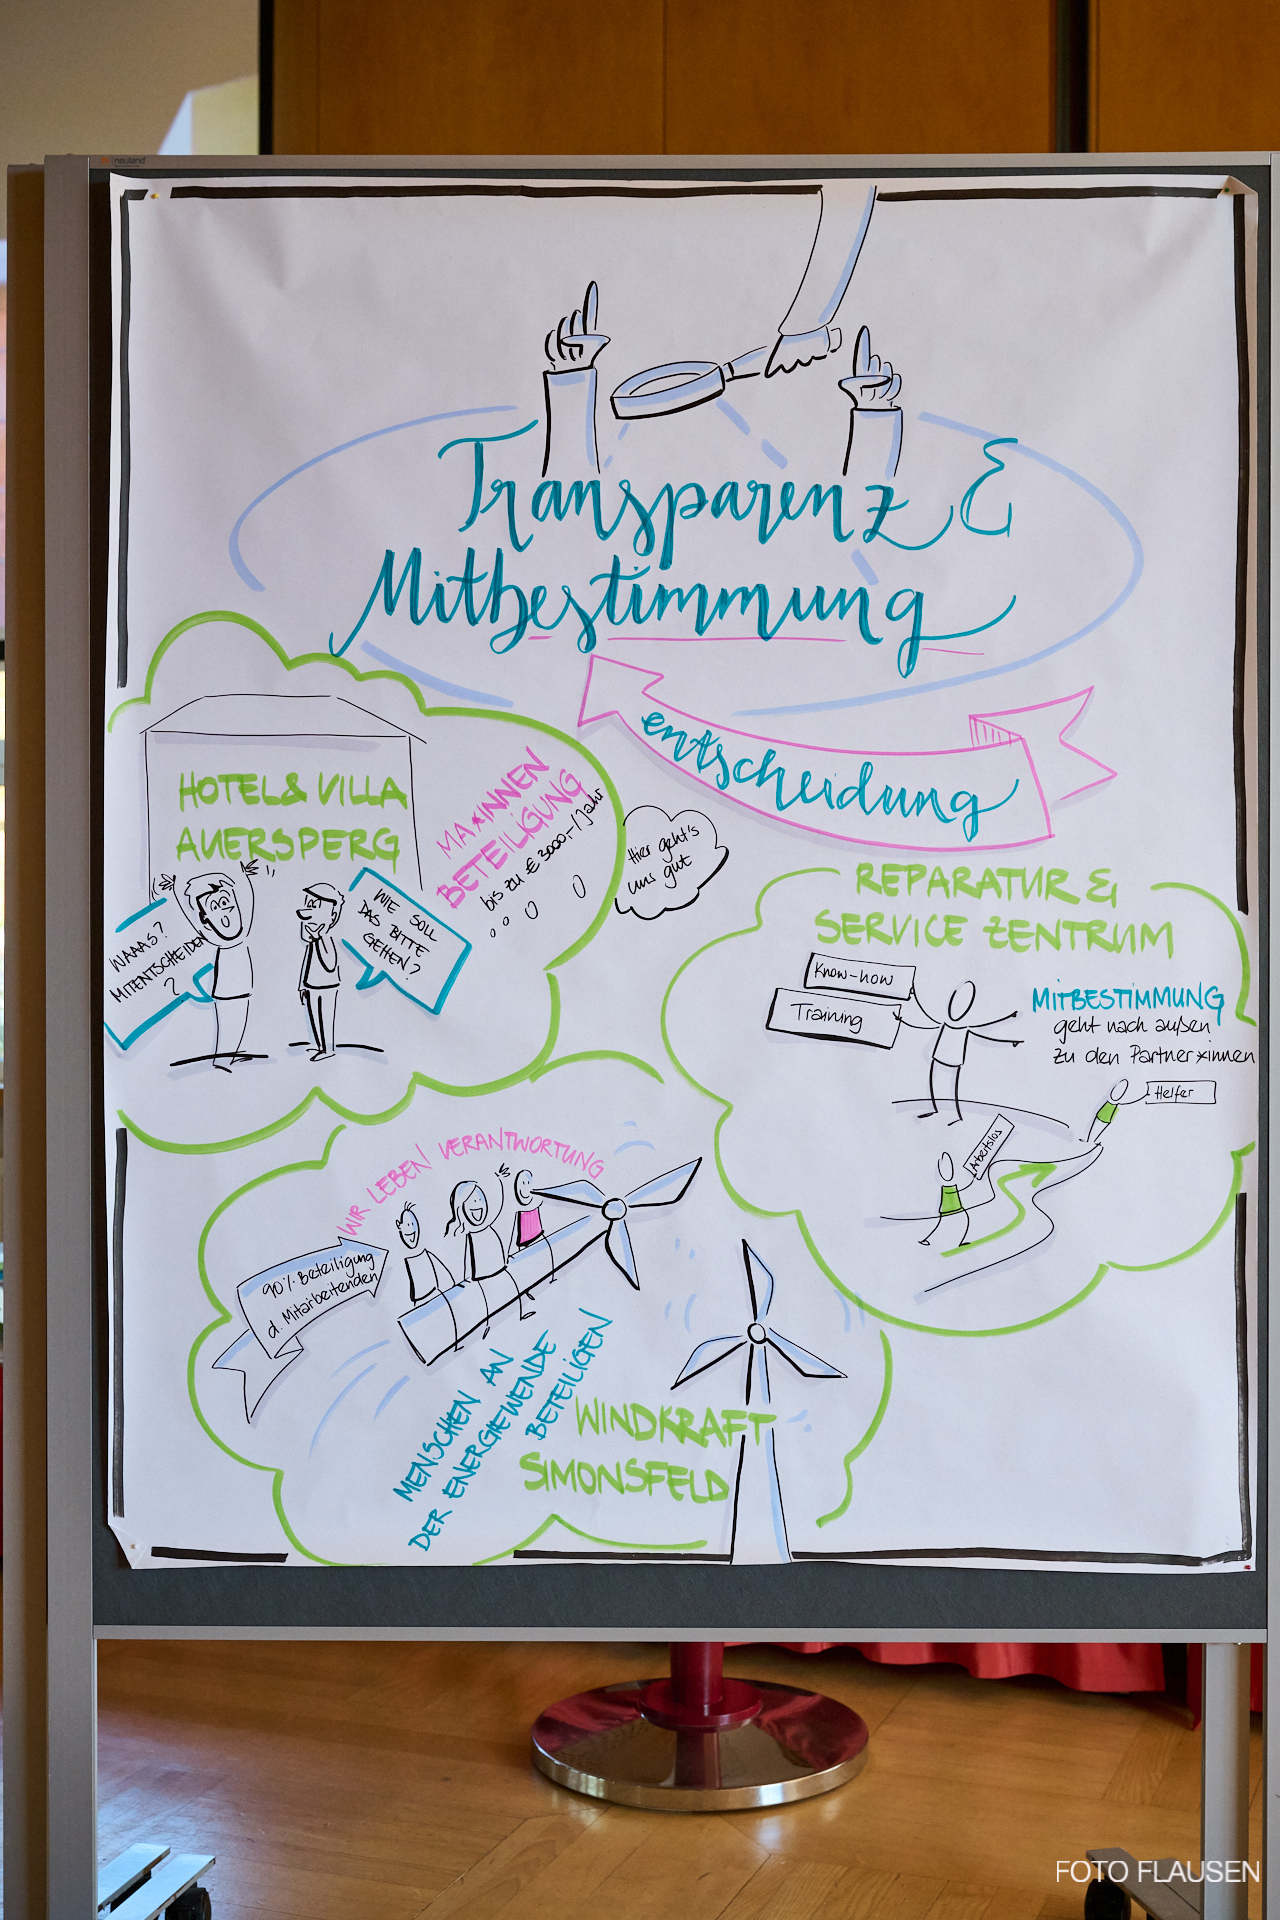 neuland
Transparenz &
Mitbestimmung
entscheidung
HOTEL & VILLA
AUERSPERG
MA*INNEN
BETEILIGUNG
bis zu € 3000,-/Jahr
Hier geht's
uns gut
WAAAS?
MITENTSCHEIDEN
?
WIE SOLL
DAS BITTE
GEHEN?
REPARATUR &
SERVICE ZENTRUM
Know-how
Training
MITBESTIMMUNG
geht nach außen
zu den Partner*innen
Helfer
Arbeitslos
WIR LEBEN VERANTWORTUNG
90% Beteiligung
d. Mitarbeitenden
MENSCHEN AN
DER ENERGIEWENDE
BETEILIGEN
WINDKRAFT
SIMONSFELD
FOTO FLAUSEN